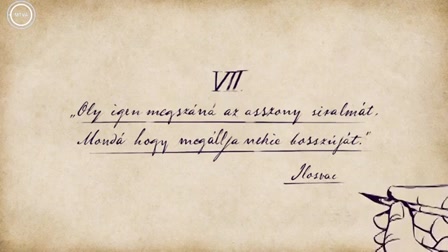 VII.
„Oly igen megszáná az asszony siralmát,
Mondá hogy megállja nékie bosszúját."
Ilosvai